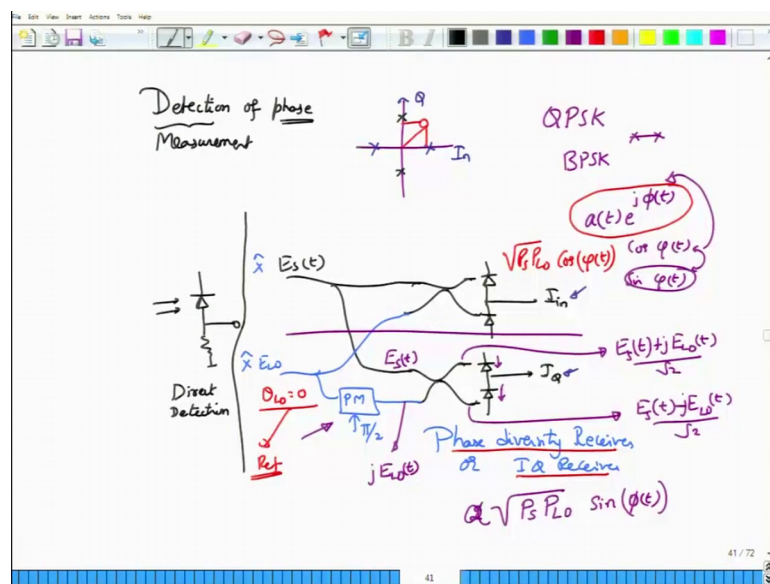 File Edit View Insert Actions Tools Help
B I
Detection of phase
Measurement
Q
In
QPSK
BPSK
a(t) e^{jφ(t)}
Cos φ(t)
Sin φ(t)
x̂ Es(t)
√PsPLO Cos(φ(t))
Iin
x̂ ELO
Es(t)
IQ
Es(t)+jELO(t)
√2
Es(t)-jELO(t)
√2
Direct
Detection
θLO=0
PM
π/2
Ref
jELO(t)
Phase diversity Receiver
or IQ Receiver
√PsPLO Sin(φ(t))
41 / 72
41